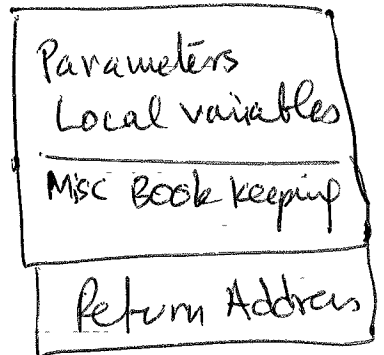 Parameters
Local variables
Misc Book keeping
Return Address